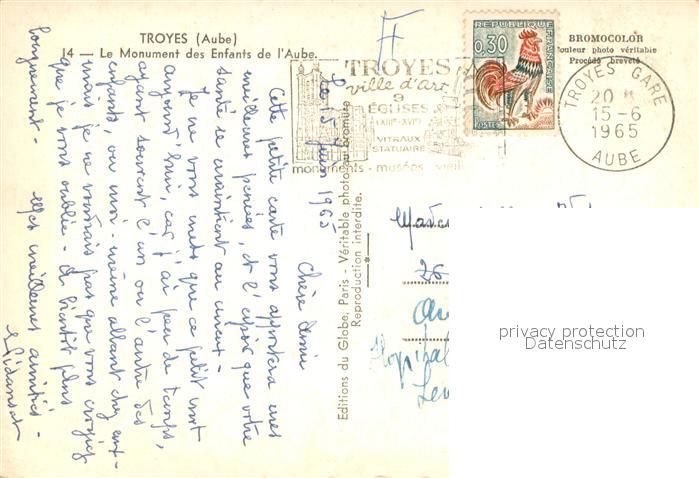 TROYES (Aube)
14 — Le Monument des Enfants de l'Aube.
BROMOCOLOR
Couleur photo véritable
Procédé breveté
REPUBLIQUE
FRANÇAISE
0,30
POSTES
TROYES
ville d'art
9
ÉGLISES
XIIIe-XVIe
VITRAUX
STATUAIRE
monuments - musées - vieil
TROYES GARE
20 H
15-6
1965
AUBE
Le 15 Juin 1965
Chère Amie
Cette petite carte vous apportera mes
meilleures pensées, et l'espoir que votre
santé se maintient au mieux -
Je ne vous mets que ce petit mot
aujourd'hui, car j'ai peu de temps,
ayant souvent l'un ou l'autre des
enfants, ou moi-même allant chez eux -
mais je ne voudrais pas que vous croyiez
que je vous oublie - A bientôt plus
longuement - Mes meilleures amitiés -
Editions du Globe, Paris - Véritable photo au bromure
Reproduction interdite.
26
Hopital
privacy protection
Datenschutz